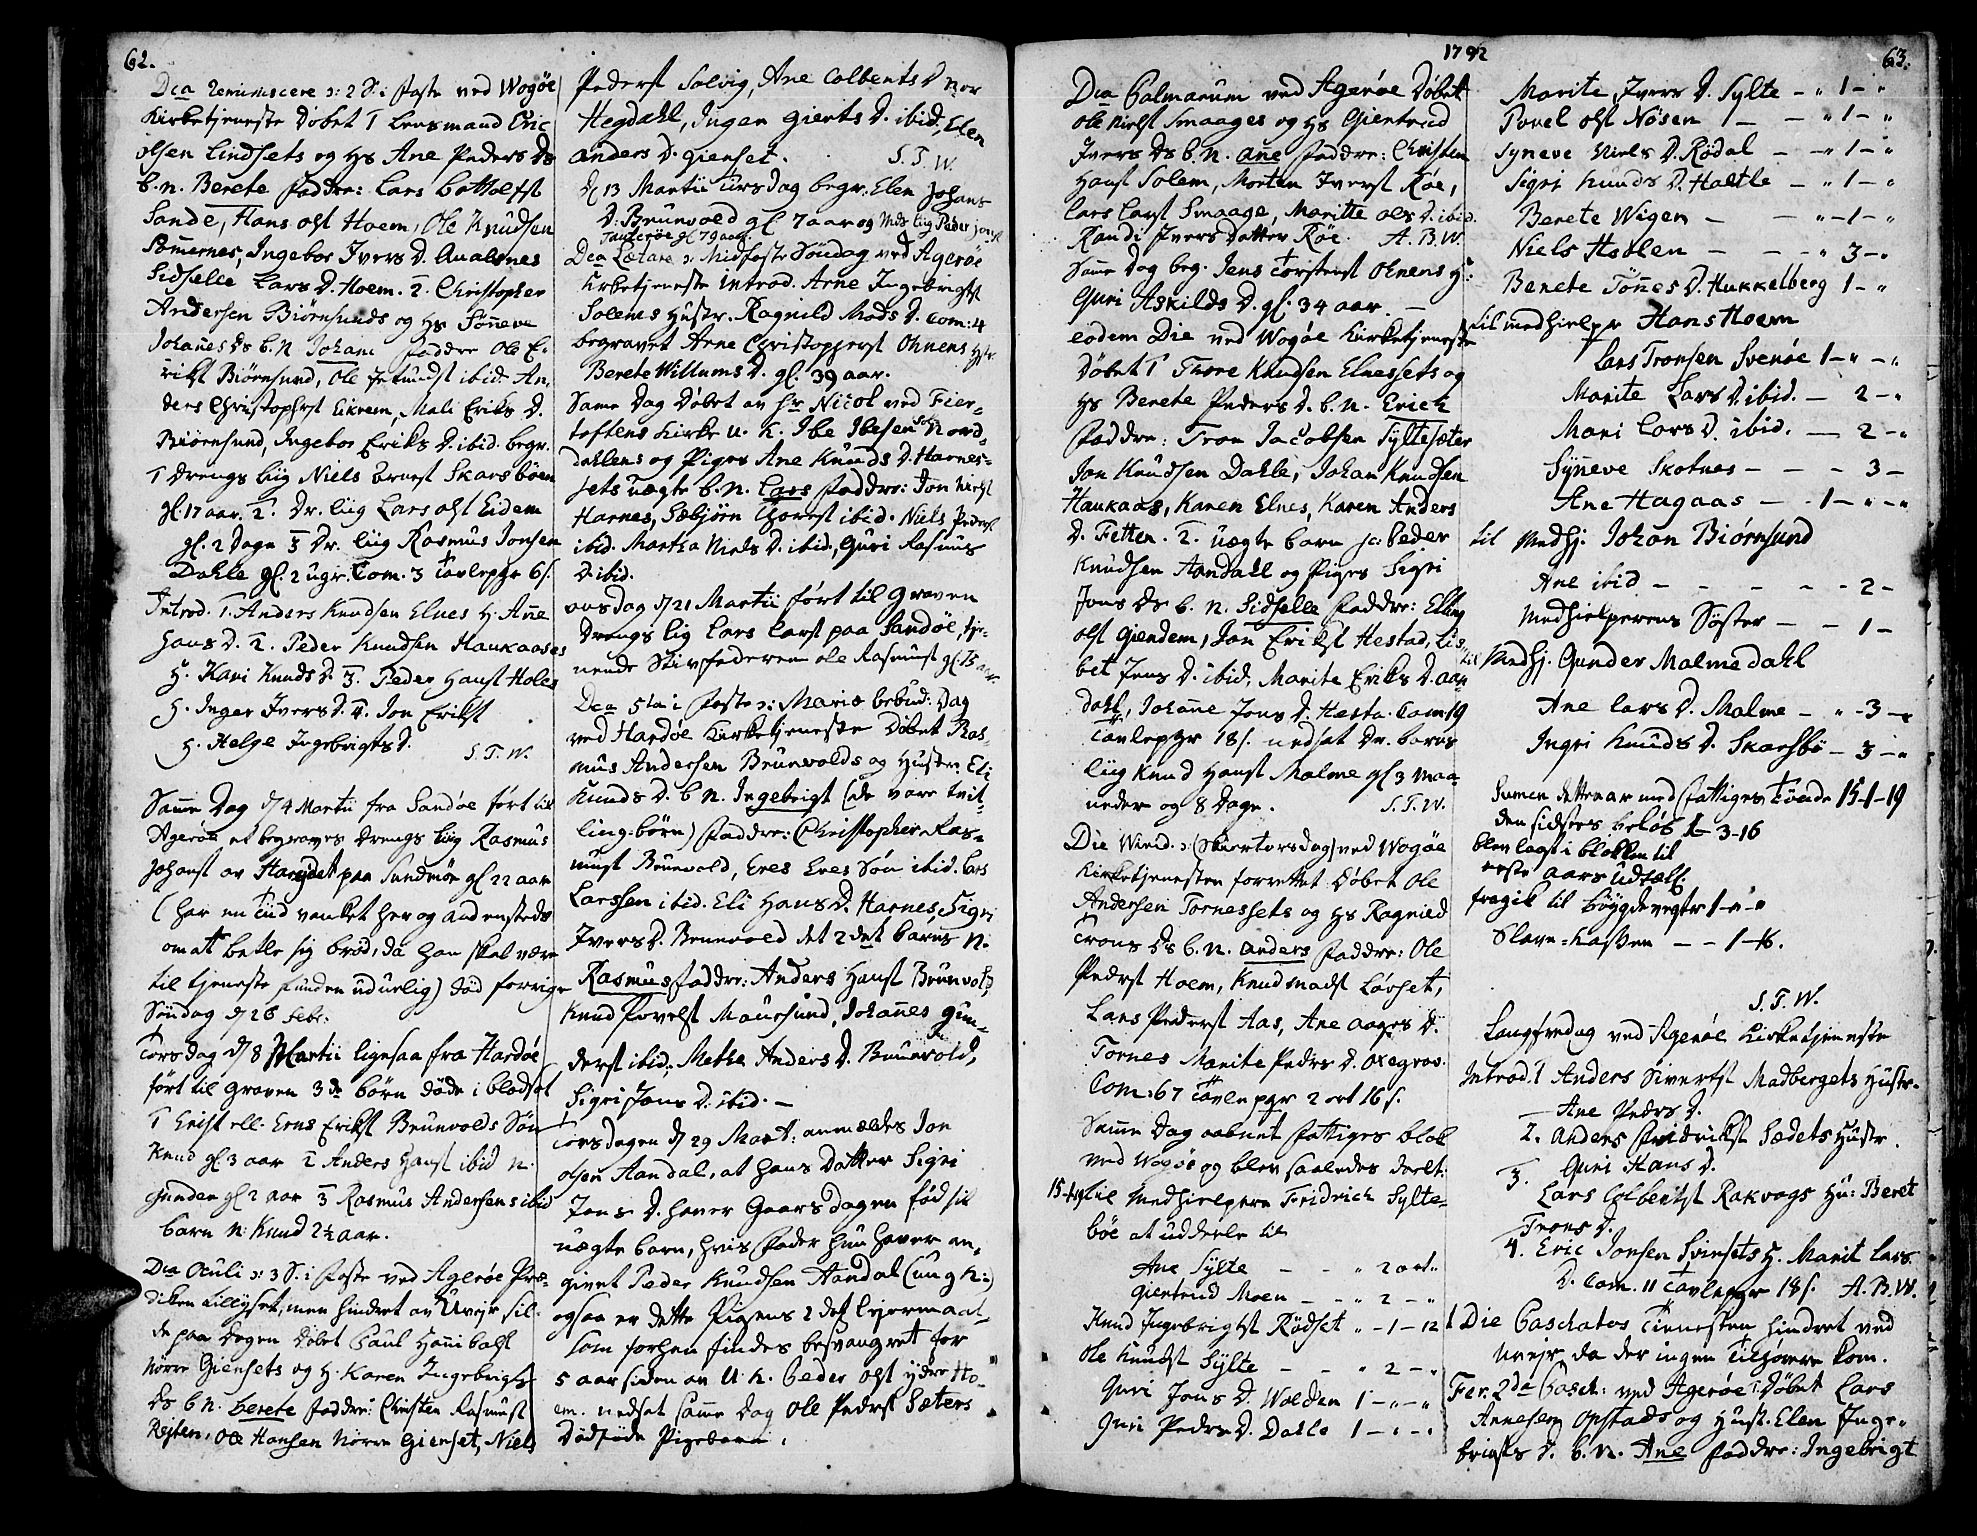 62.
Dca Reminiscere ɔ: 2 S. i Faste ved Wogøe
Kirketjeneste Døbet 1 Lensmand Eric
Olsen Lindsets og Hs Ane Peders Ds
b. n. Berete Faddre: Lars Botholfst
Sande, Hans Olst Hoem, Ole Knudsen
Sømernes, Ingebor Ivers D. Aualsnes
Sidselle Lars D. Hoem. 2. Christopher
Andersen Biørnsunds og Hs Sønneve
Johanes Ds b. N Johane Faddre Ole E-
rikst Biørnsund, Ole ibid. An-
ders Christopherst Eikrem, Mali Eriks D.
Biørnsund, Ingebor Eriks D. ibid. begr.
1 Drengs liig Niels Skarsbøen
gl. 17 aar, 2. Dr. liig Lars Olst Eidem
gl. 2 Dage 3 Dr. liig Rasmus Jonsen
Dahle gl. 2 ugr. Com. 3 Tavlepge 6 s.
Introd. 1. Anders Knudsen Elnes H. Ane
Hans D. 2. Peder Knudsen Haukaases
H. Kari Knuds D. 3. Peder Hanst Holes
H. Inger Ivers D. 4. Jon Erikst
H. Helge Ingebrigts D. S. T. W.
Samme Dag d 4 Martii fra Sandøe ført til
Agerøe et begraves Drengs liig Rasmus
Johanst av Harødet paa Sundmør gl 22 aar
(har en Tiid vanket her og andensteds
om at betle sig brød, da han skal være
til tjeneste funden uduelig) død forrige
Søndag d 26 Febr.
Torsdag d 8 Martii ligesaa fra Hardøe
ført til graven 3de børn døde i blodsot
1 Erist ell. Eens Erikst Brunvolds Søn
Knud gl 3 aar 2 Anders Hanst ibid n.
Gunder gl 2 aar 3 Rasmus Andersens ibid
barn N: Knud 2½ aar.
Dca Oculi ɔ: 3 S. i Faste ved Agerøe Præ-
diken tillyset, men hindret av Uvejr sil-
de paa Dagen Døbet Paul Hanibalst
Nørre Giensets og H. Karen Ingebrigts
Ds b n. Berete Faddre: Christen Rasmust
Rejten, Ole Hansen Nørre Gienset, Niels
Pederst Solvig, Ane Colbents D Nor
Hegdahl, Inger Gierts D. ibid, Elen
Anders D. Gienset. S. T. W.
d 13 Martii tirsdag begr. Elen Johans
D. Brunvold gl 7 aar og Mds liig Peder
Tauterøe gl 79 aar.
Dca Lætare ɔ: Midfaste Søndag ved Agerøe
Kirketjeneste Introd. Arne Ingebrigtst
Solems Hustr. Ragnild Mods D. Com: 4
begravet Arne Christopperst Ohnens Hstr
Berete Willums D. gl. 39 aar.
Same Dag Døbet av Hr Nicol ved Fier-
toftens Kirke U. K. Ibe Ibesen Nord-
dahlens og Piges Ane Knuds D. Harnes-
sets uægte b. N. Lars Faddre: Jon
Harnes, Sæbjørn Thorest ibid. Niels Pederst
ibid. Martha Niels D. ibid, Guri Rasmus
D. ibid.
onsdag d 21 Martii ført til Graven
Drengs lig Lars Larst paa Sandøe, tje-
nende Stivfaderen Ole Rasmust gl 15 aar.
Dca 5ta i Faste ɔ: Mariæ bebud. Dag
ved Hardøe Kirketjeneste Døbet Ras-
mus Andersen Brunvolds og Hustr. Eli
Knuds D. b N. Ingebrigt (de vare tvil-
ling børn) Faddre: Christopher Ras-
must Brunvold, Eres Eres Søn ibid. Lars
Larssen ibid. Eli Hans D. Harnes, Sigri
Ivers D. Brunvold det 2det barns N.
Rasmus Faddre: Anders Hanst Brunvold,
Knud Povelst Mausund, Johanes Gun-
derst ibid, Methe Anders D. Brunvold,
Sigri Jons D. ibid. —
Torsdagen d 29 Mart: anmældes Jon
Olsen Aandal, at hans Datter Sigri
Jons D. haver Gaars dagen fød sit
uægte barn, hvis Fader hun haver an-
givet Peder Knudsen Aandal (ung K:)
ogsaa er dette Pigens 2 det lejermaal
som forhen findes besvangret for
5 aar siden av U. K. Peder Olst ydre Ho-
em. nedsat samme Dag Ole Pederst Sæters
Dødføde Pigebarn.
1792
Dca Palmarum ved Agerøe Døbet
Ole Nielst Smaages og Hs Giertrud
Ivers Ds b. N. Ane Faddre: Christen
Hanst Solem, Morten Iverst Røe,
Lars Larst Smaage, Maritte Ols D. ibid.
Randi Ivers datter Røe. A. B. W.
Samme Dag beg. Jens Torstenst Ohnens H:
Guri Askilds D. gl. 34 aar. —
eodem Die ved Wogøe Kirketjeneste
Døbet 1 Thore Knudsen Elnessets og
Hs Berete Peders D. b. N. Erich
Faddre: Tron Jacobsen Syltesæter
Jon Knudsen Dahle, Johan Knudsen
Haukaas, Karen Elnes, Karen Anders
D. Fetten. 2. uægte barn Peder
Knudsen Aandall og Piges Sigri
Jons Ds b. N. Sidselle Faddre: Elling
Olst Giendem, Jon Erikst Hestad, Lis-
bet Jens D. ibid, Marite Eriks D. Aan-
dahl, Johanne Jons D. Hæsta. Com: 19
Tavlepger 18 s. nedsat Dr. barns
liig Knud Hanst Malme gl 3 maa-
neder og 8 Dage. S. T. W.
Die Virid. ɔ: (Skiertorsdag) ved Wogøe
Kirketjenesten forrettet Døbet Ole
Andersen Tornessets og Hs Ragnild
Trons Ds b. N. Anders Faddre: Ole
Pederst Hoem, Knud Madst Løvset,
Lars Pederst Aas, Ane Aages D.
Tornes Marite Peders D. Oxegrov.
Com: 67 Tavle pger 2 ort 16 s.
Samme Dag aabnet Fattiges blok
ved Wogøe og blev saaledes deelt:
til Medhielpern Fridrich Sylte-
bøe at uddeele til
Ane Sylte — — " 2 ort "
Giertrud Moen — — " 2 — "
Knud Ingebrigtst Rødset " — 1 — 12
Ole Knudst Sylte — — " 2 — "
Guri Jons D. Wolden 1 — " — "
Guri Peders D. Dahle 1 — " — "
63.
Marite Ivers D. Sylte — " 1 — "
Povel Olst Nøsen — " 1 — "
Syneve Niels D. Rødal — — " 1 — "
Sigri Knuds D. Holtle — " 1 — "
Berete Wigen — — " — 1 — "
Niels Haslen — — — " 3 — "
Berete Tønes D. Hukkelberg 1 — "
til Medhielpr Hans Hoem
Lars Tronsen Svenøe 1 — " — "
Marite Lars D. ibid. — 2 — "
Mari Lars D. ibid. — 2 — "
Synneve Skotnes — — — 3 —
Ane Hagaas — — 1 — " — "
til Medhj. Johan Biørnsund
Ane ibid — — — — 2 —
Medhielperens Søster — — 1 —
til Medhj. Gunder Malmedahl
Ane Lars D. Malme — " — 3 — "
Ingri Knuds D. Skarsbø — 3 — "
Sumen dette aar med Fattiges Tønde 15-1-19
den sidstes beløb 1-3-16
blev lagt i blokken til
neste aars udtæll.
fragik til bøygdevegter 1-"-"
Slave-Kassen — — 1-16.
S. T. W.
Langfredag ved Agerøe Kirketjeneste
Introd. 1 Anders Sivertst Madbergets Hustr.
— Ane Peders D.
2. Anders Fridrikst Sædets Hustr.
Guri Hans D.
3. Lars Colbentst Rakvogs Hu: Beret
Trons D.
4. Eric Jonsen Svinsets H. Marit Lars.
D. Com. 11 Tavlepger 18 s. A. B. W.
1 Die Paschatos Tienesten hindret ved
Uvejr da der ingen Tilhørere kom.
Fer. 2da Pasch: ved Agerøe 1. Døbet Lars
Annesen Opstads og Hust. Elen Inge-
brigts D. b. N. Ane Faddre: Ingebrigt